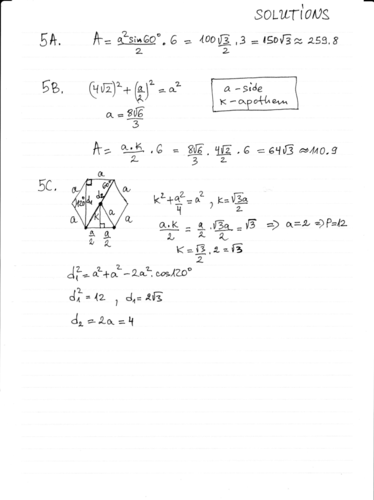 SOLUTIONS
5A. A = a² sin60°/2 · 6 = 100√3/2 · 3 = 150√3 ≈ 259.8
5B. (4√2)² + (a/2)² = a²
a = 8√6/3
a - side
k - apothem
A = a.k/2 · 6 = 8√6/3 · 4√2/2 · 6 = 64√3 ≈ 110.9
5C.
a
60°
a d₂ a
120° d₁
a k a a
a/2 a/2
k² + a²/4 = a² , k = √3a/2
a.k/2 = a/2 · √3a/2 = √3 ⇒ a = 2 ⇒ P = 12
k = √3/2 · 2 = √3
d₁² = a² + a² - 2a² · cos120°
d₁² = 12 , d₁ = 2√3
d₂ = 2a = 4